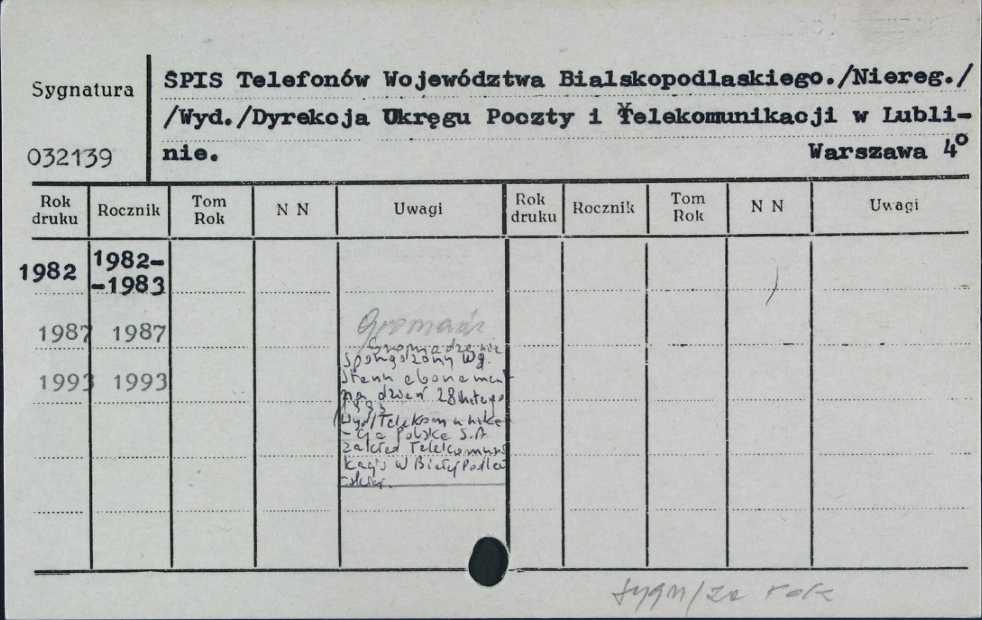 Sygnatura
032139
SPIS Telefonów Województwa Bialskopodlaskiego./Niereg./
/Wyd./Dyrekcja Okręgu Poczty i Telekomunikacji w Lubli-
nie. Warszawa 4°
Rok druku Rocznik Tom Rok N N Uwagi Rok druku Rocznik Tom Rok N N Uwagi
1982 1982-
-1983
1987 1987
1993 1993
Gromadz
sporządzony wg.
stanu abonamen
na dzień 28 lutego
1993
Wyd/Telekomunika-
-cja Polska S.A
zakład Telekomuni
kacji w Białej Podla
-skiej.
sygn/za rok